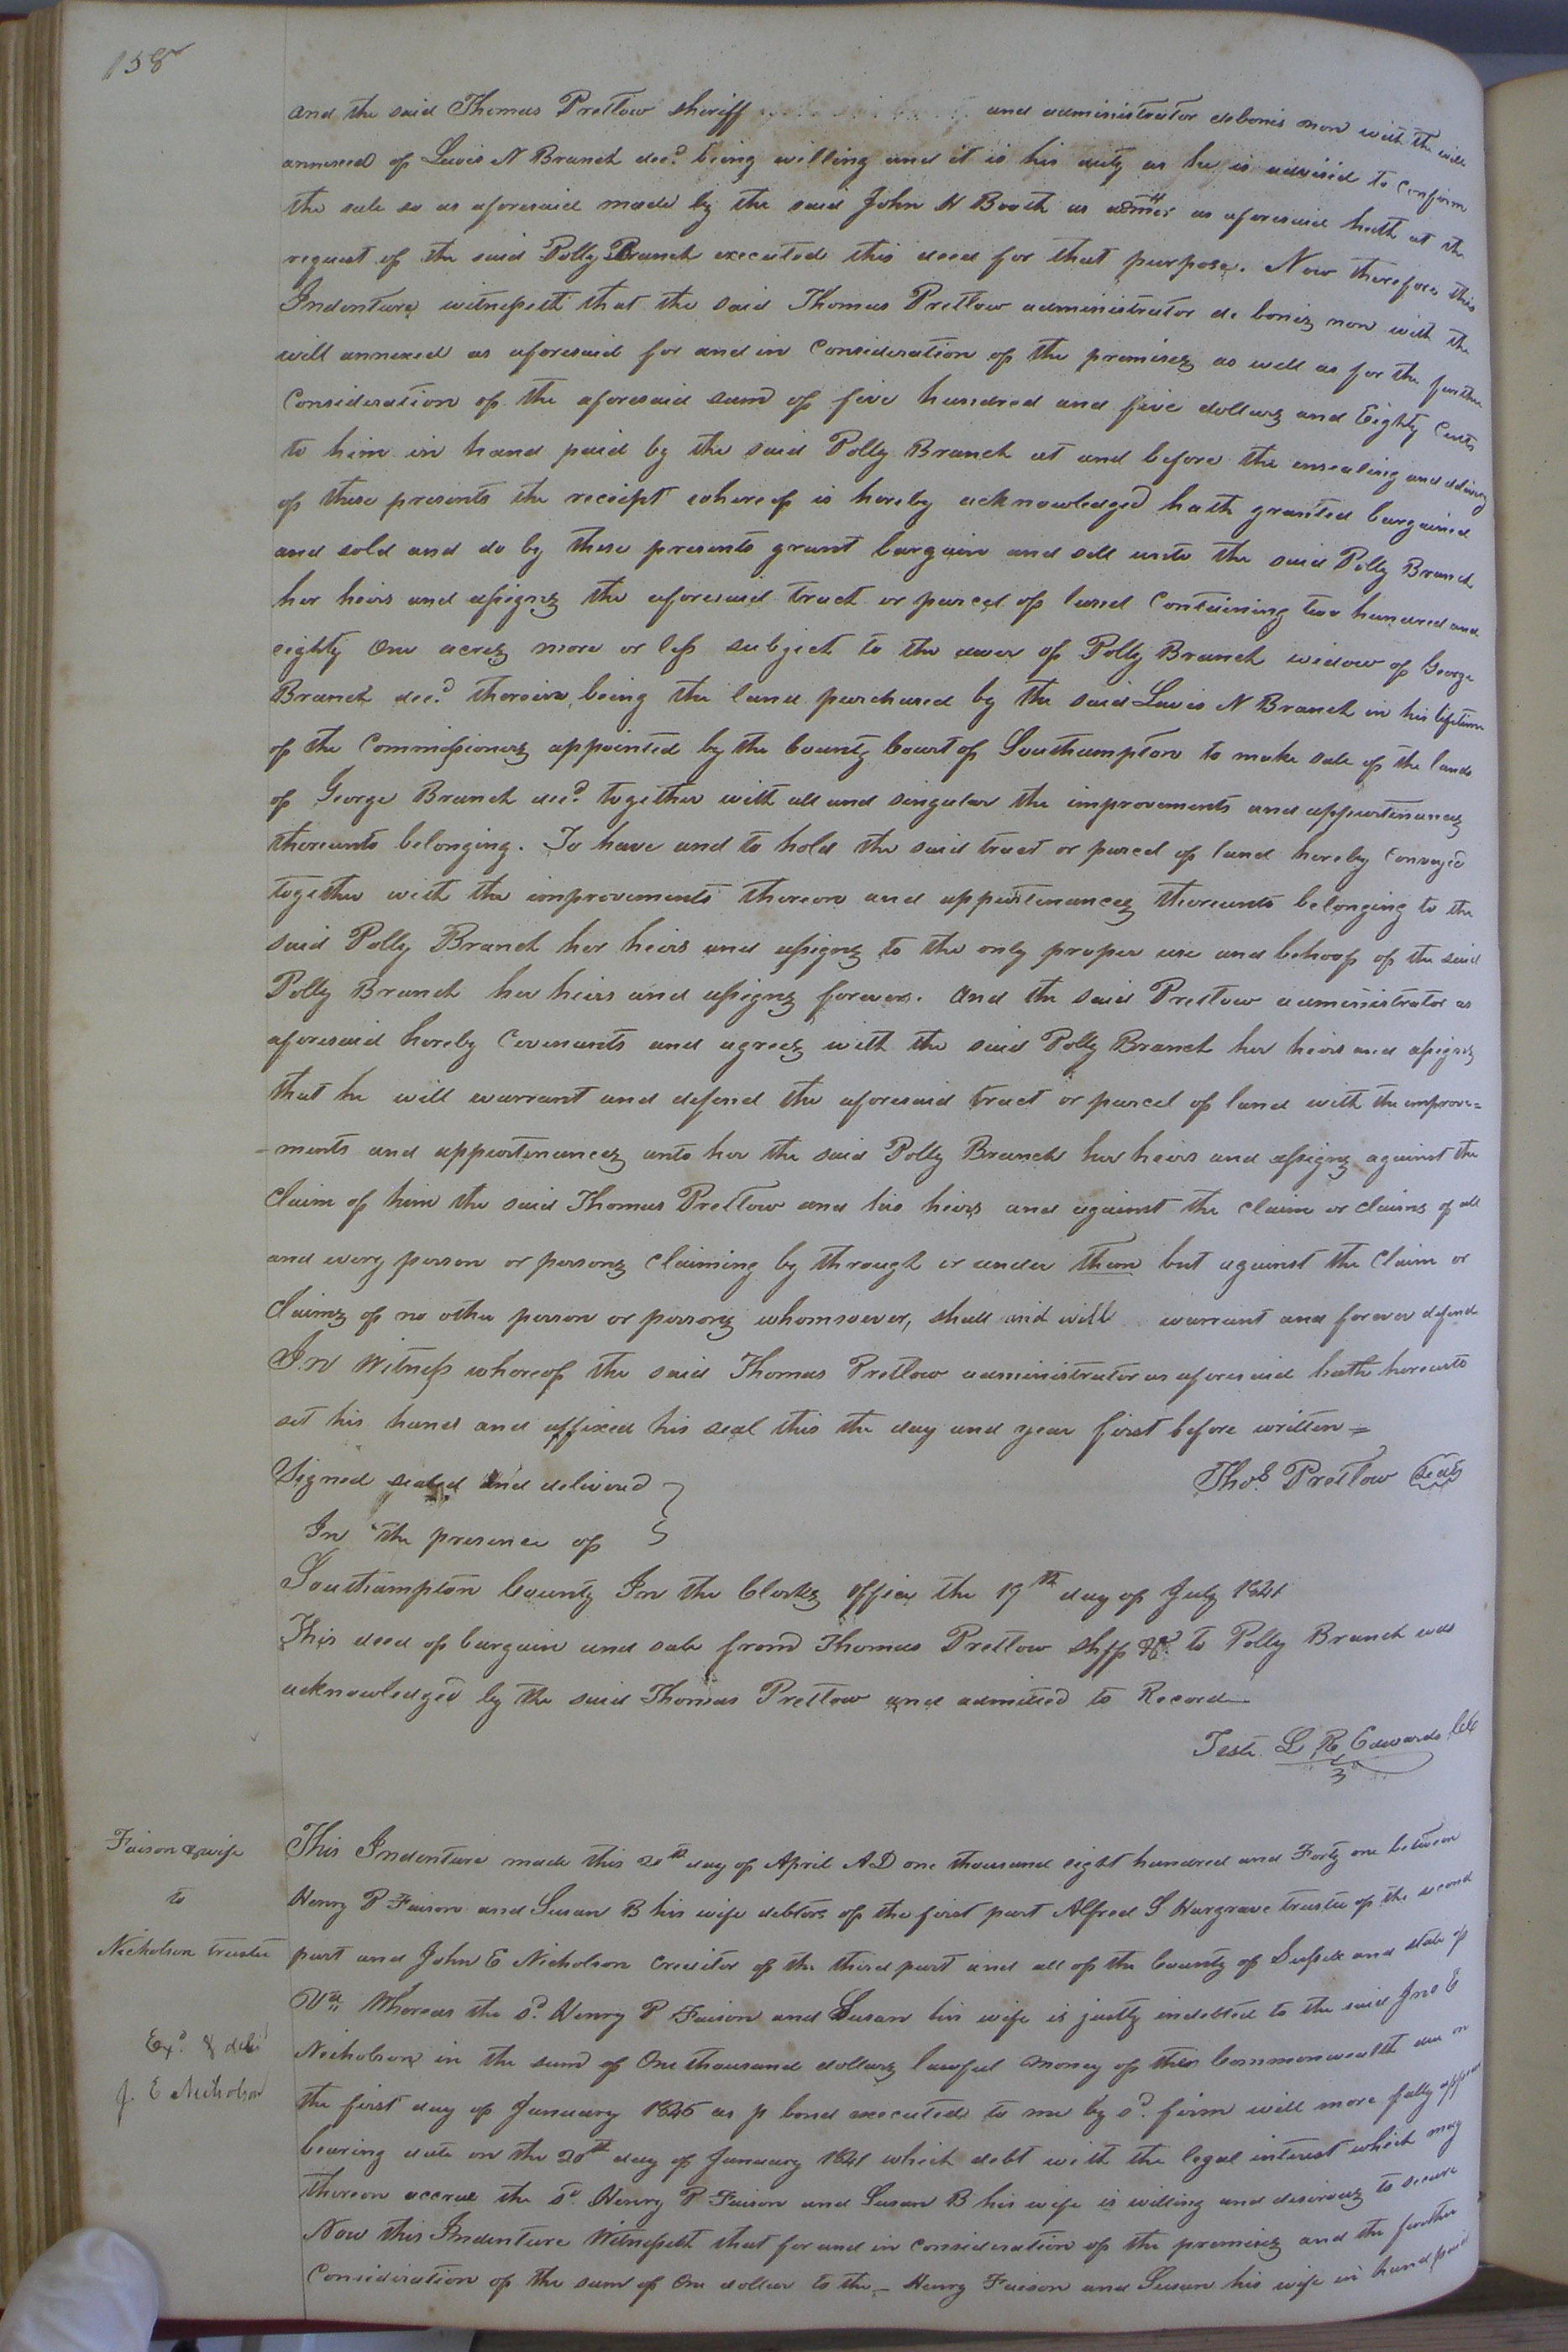 158
and the said Thomas Pretlow sheriff and administrator debonis non with the will
annexed of Lewis N Branch decd. being willing and it is his duty as he is advised to confirm
the sale so as aforesaid made by the said John N Booth as admor as aforesaid hath at the
request of the said Polly Branch executed this deed for that purpose. Now therefore this
Indenture witnesseth that the said Thomas Pretlow administrator de bonis non with the
will annexed as aforesaid for and in Consideration of the premises as well as for the further
Consideration of the aforesaid sum of five hundred and five dollars and Eighty Cents
to him in hand paid by the said Polly Branch at and before the ensealing and delivery
of these presents the receipt whereof is hereby acknowledged hath granted bargained
and sold and do by these presents grant bargain and sell unto the said Polly Branch
her heirs and assigns the aforesaid tract or parcel of land Containing two hundred and
eighty One acres more or less subject to the dower of Polly Branch widow of George
Branch decd. therein, being the land purchased by the said Lewis N Branch in his lifetime
of the Commissioners appointed by the County Court of Southampton to make sale of the lands
of George Branch decd. together with all and singular the improvements and appurtenances
thereunto belonging. To have and to hold the said tract or parcel of land hereby Conveyed
together with the improvements thereon and appurtenances thereunto belonging to the
said Polly Branch her heirs and assigns to the only proper use and behoof of the said
Polly Branch her heirs and assigns forever. And the said Pretlow administrator as
aforesaid hereby Covenants and agrees with the said Polly Branch her heirs and assigns
that he will warrant and defend the aforesaid tract or parcel of land with the improve=
-ments and appurtenances unto her the said Polly Branch her heirs and assigns against the
Claim of him the said Thomas Pretlow and his heirs and against the claim or claims of all
and every person or persons Claiming by through or under them but against the Claim or
Claims of no other person or persons whomsoever, shall and will warrant and forever defend
In Witness whereof the said Thomas Pretlow administrator as aforesaid hath hereunto
set his hand and affixed his seal this the day and year first before written =
Signed sealed and delivered Thos. Pretlow Seal
In the presence of
Southampton County In the Clerks office the 19th day of July 1841
This deed of bargain and sale from Thomas Pretlow Shff &c. to Polly Branch was
acknowledged by the said Thomas Pretlow and admitted to Record
Teste L R Edwards Clk
Faison & wife
to
Nicholson trustee
Exd. & deld
J. E Nicholson
This Indenture made this 20th day of April A D one thousand eight hundred and Forty one between
Henry P Faison and Susan B his wife debtors of the first part Alfred S Hargrave trustee of the second
part and John E Nicholson Creditor of the third part and all of the County of Sussex and state of
Va. Whereas the sd. Henry P Faison and Susan his wife is justly indebted to the said Jno E
Nicholson in the sum of One thousand dollars lawful money of this Commonwealth due on
the first day of January 1845 as p bond executed to me by sd. firm will more fully appear
bearing date on the 20th day of January 1841 which debt with the legal interest which may
thereon accrue the sd. Henry P Faison and Susan B his wife is willing and desirous to secure
Now this Indenture Witnesseth that for and in consideration of the premises and the further
Consideration of the sum of One dollar to the - Henry Faison and Susan his wife in hand paid